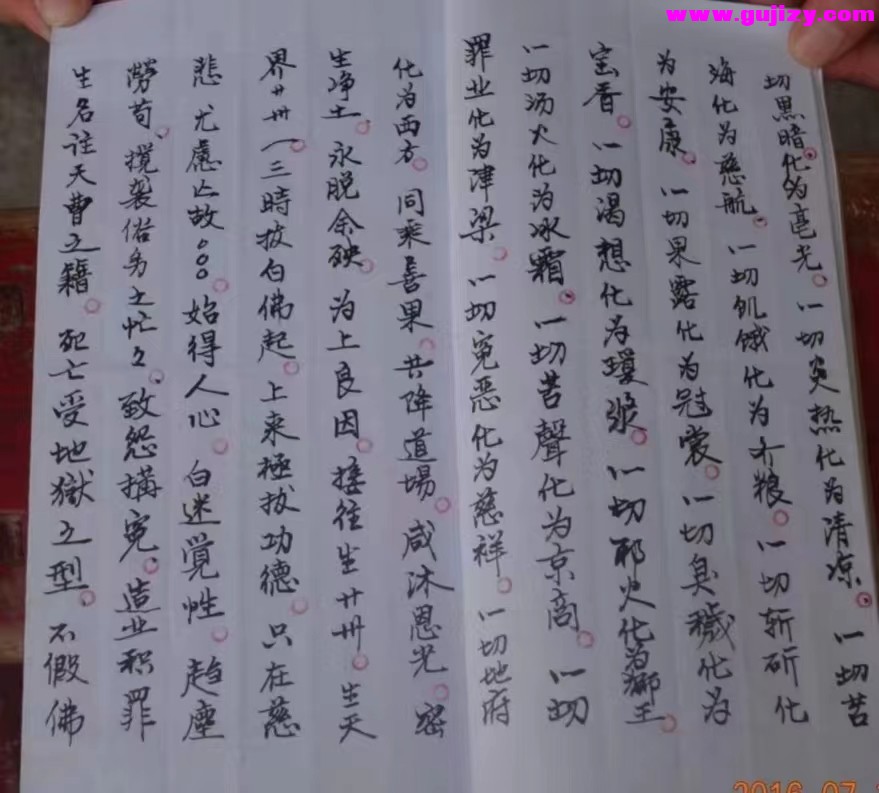 www.gujizy.com
切黑暗化为毫光。一切炎热化为清凉。一切苦
海化为慈航。一切饥饿化为个粮。一切斩斫化
为安康。一切果露化为冠裳。一切臭穢化为
宝香。一切渴想化为瓊浆。一切邪火化为獅王。
一切汤火化为冰霜。一切苦聲化为京商。一切
罪业化为津梁。一切冤恶化为慈祥。一切地府
化为西方。同乘善果。共降道場。咸沐恩光。密
生净土。永脱余殃。为上良因。接往生卄卌。生天
界卄卌(三時拔白佛起。上来極拔功德。只在慈
悲 尤慮亡故。。。始得人心。白迷覺性。趋塵
勞苟、攪袈俗务之忙々、致怨搆冤。造业积罪
生名注天曹之籍。死亡受地獄之型。不假佛
2016 07